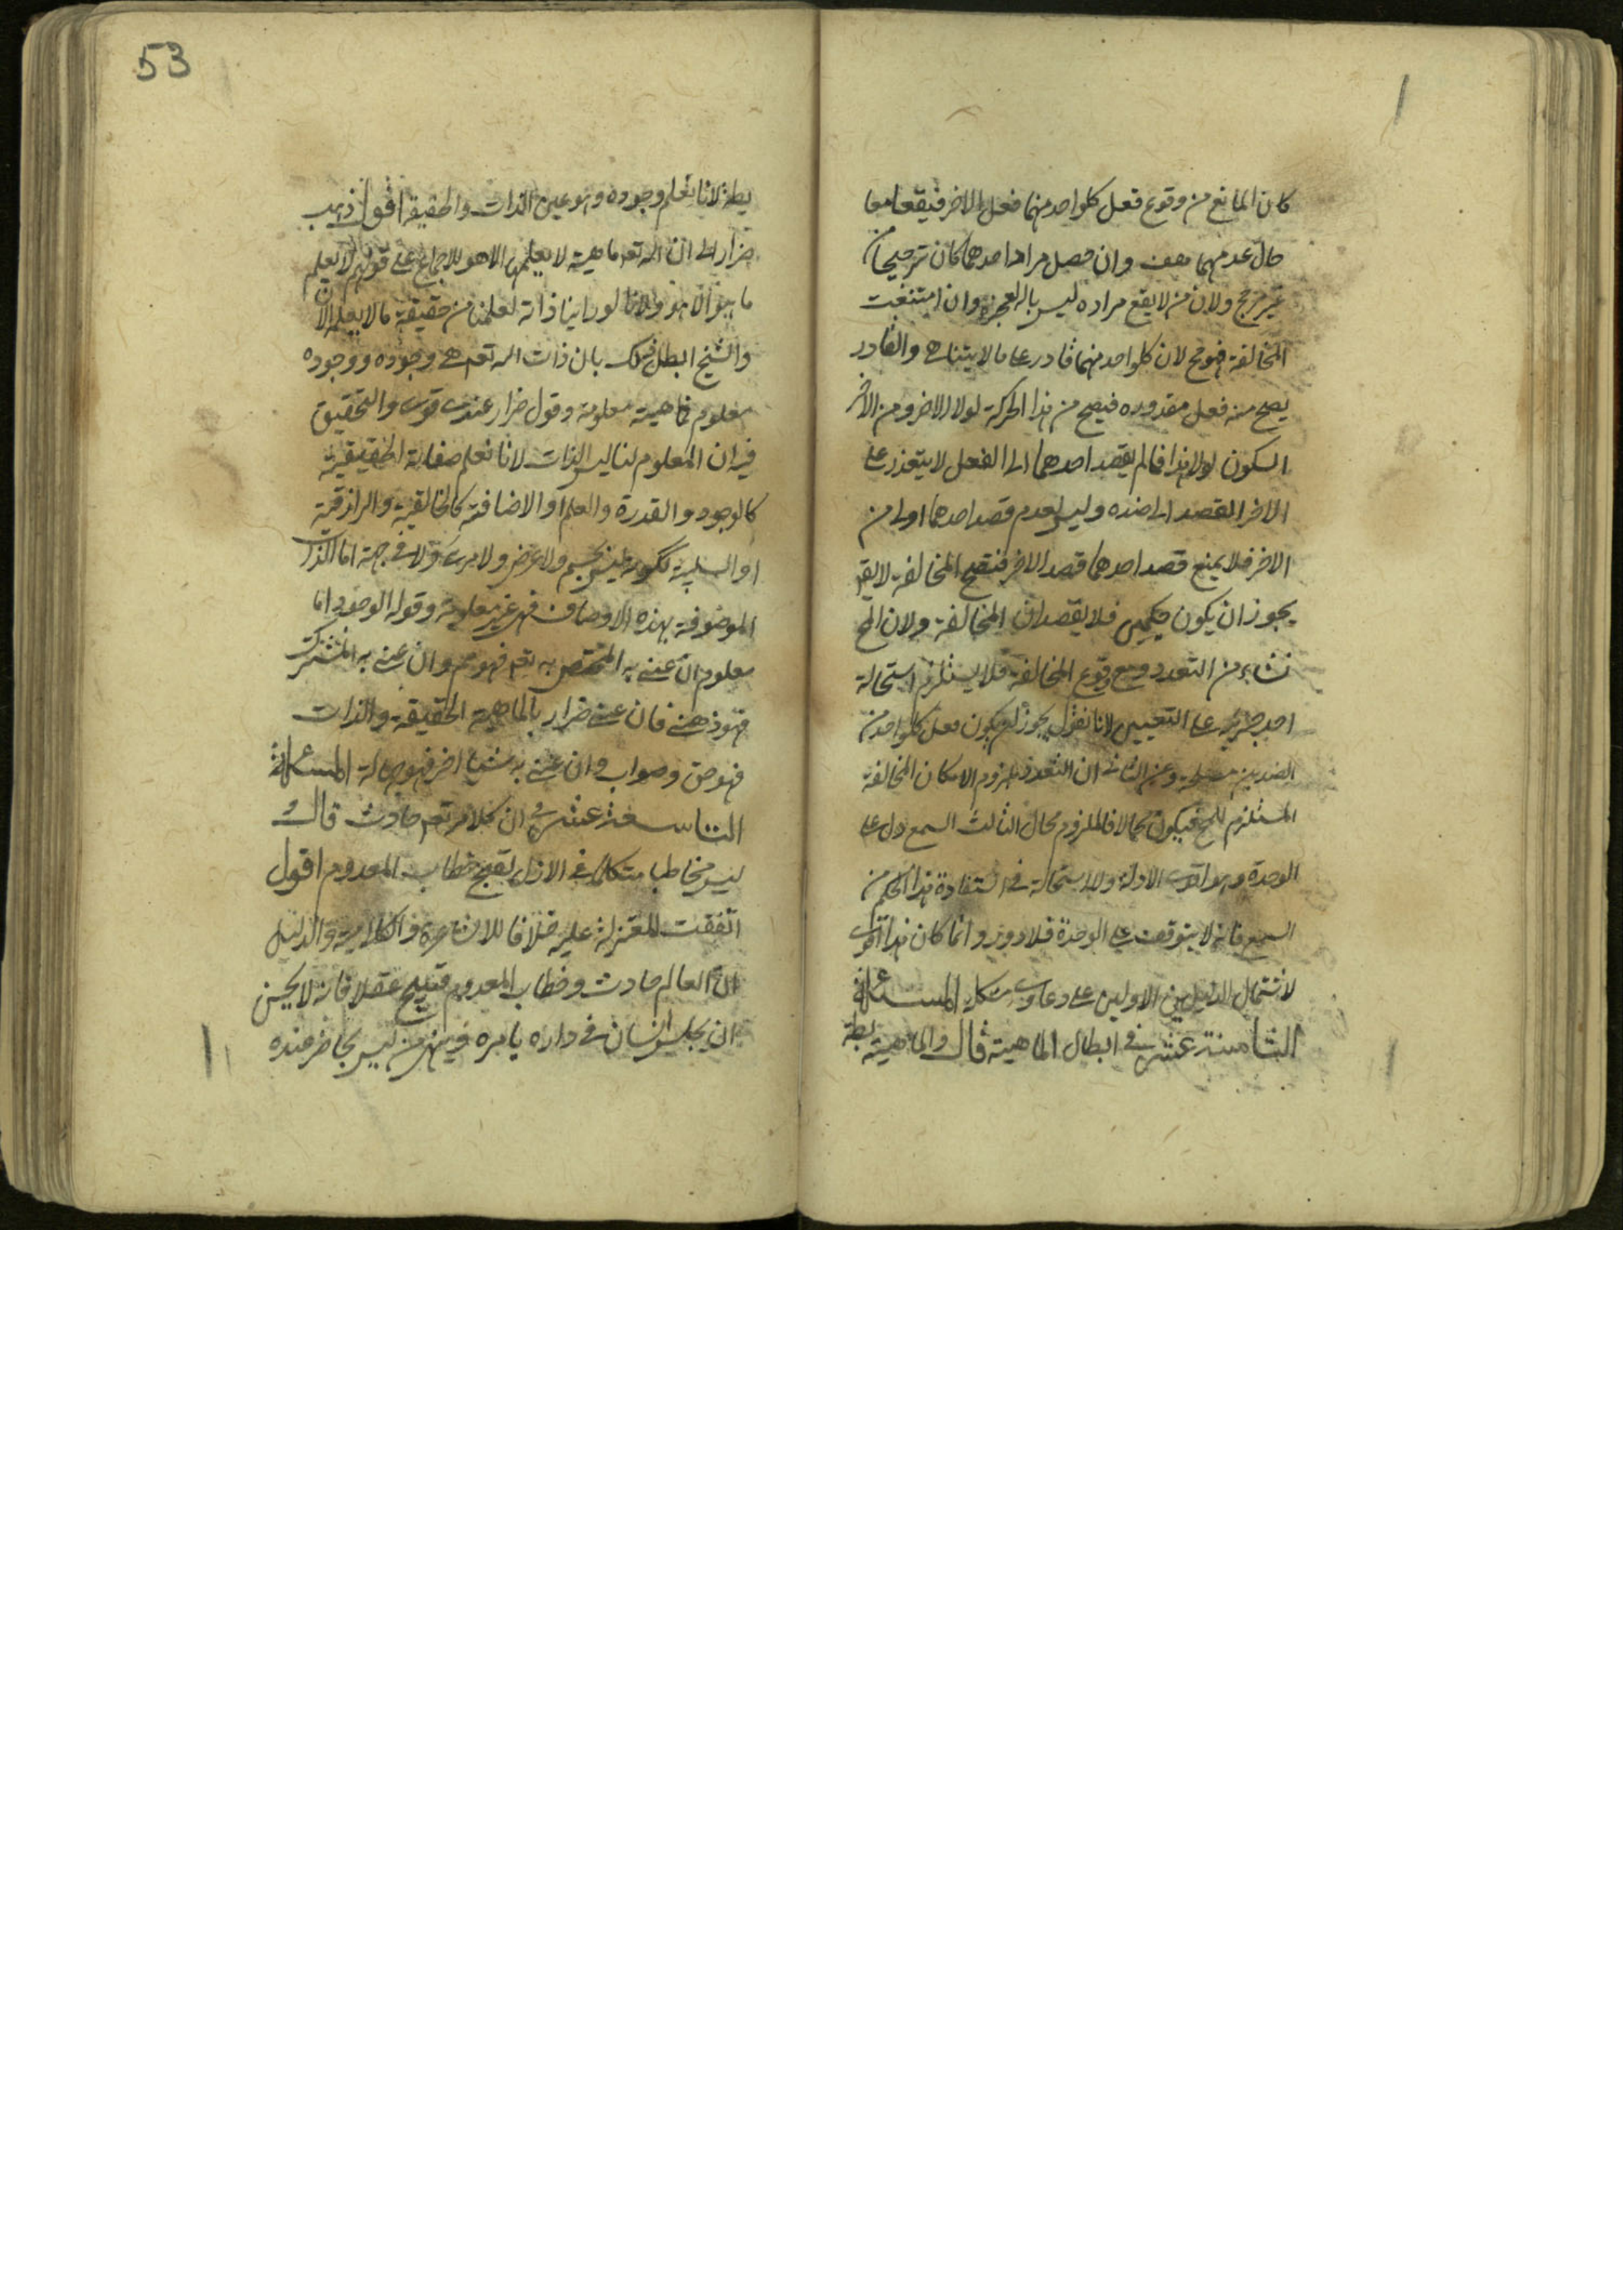 كان المانع من وقوع فعل كلواحد منهما فعل الاخر فيقعا معا
حال عدمهما هف وان حصل مراد احدهما كان ترجيحا من
غير مرجح ولان من لا يقع مراده ليس باله لعجزه وان امتنعت
المخالفة فهو مح لان كلواحد منهما قادر على ما لا يتناهى والقادر
يصح منه فعل مقدوره فيصح من هذا الحركة لولا الاخر ومن الاخر
السكون لولا هذا فما لم يقصد احدهما الى الفعل لا يتعذر على
الاخر القصد الى ضده وليس لعدم قصد احدهما اولى من
الاخر فلا يمنع قصد احدهما قصد الاخر فتصح المخالفة لا يقـ
يجوز ان يكون حكيمين فلا يقصدان المخالفة ولان المح
نشاء من التعدد ومع وقوع المخالفة فلا يستلزم استحالة
احد جزئيه على التعيين لانا نقول يجوز ان يكون فعل كلواحد من
الضدين مصلحة وعن الثانى ان التعدد ملزوم لامكان المخالفة
المستلزم للمح فيكون محالا فالملزوم محال الثالث السمع دل على
الوحدة وهو اقوى الادلة ولا استحالة فى استفادة هذا الحكم من
السمع فانه لا يتوقف على الوحدة فلا دور وانما كان هذا اقوى
لاشتمال الدليلين الاولين على دعاوى مشكلة المسئلة
الثامنة عشر فى ابطال الماهية قال والماهية بطة
53
بطة لانا نعلم وجوده وهو عين الذات والحقيقة اقول ذهب
ضرار الى ان لله تعـ ماهية لا يعلمها الا هو للاجماع على قولهم لا يعلم
ما هو الا هو ولانا لو راينا ذاته لعلمنا من حقيقته ما لا يعلم الان
والشيخ ابطل ذلك بان ذات الله تعـ هى وجوده ووجوده
معلوم فماهيته معلومة وقول ضرار عندى قوى والتحقيق
فيه ان المعلوم لنا ليس الذات لانا نعلم صفاته الحقيقية
كالوجود والقدرة والعلم او الاضافية كالخالقية والرازقية
او السلبية ككونه ليس بجسم ولا عرض ولا مرئى ولا فى جهة اما الذات
الموصوفة بهذه الاوصاف فهى غير معلومة وقوله الوجود انا
معلوم ان عنى به المختص به تعـ فهو مم وان عنى به المشترك
فهو ذهنى فان عنى ضرار بالماهية الحقيقة والذات
فهو حق وصواب وان عنى به شيئا اخر فهو جهالة المسئلة
التاسعة عشر فى ان كلامه تعـ حادث قال
ليس مخاطبا متكلما فى الازل لقبح خطاب المعدوم اقول
اتفقت المعتزلة عليه خلافا للاشاعرة والكلابية والدليل
ان العالم حادث وخطاب المعدوم قبيح عقلا فانه لا يحسن
ان يجلس انسان فى داره يامره وينهى من ليس بحاضر عنده